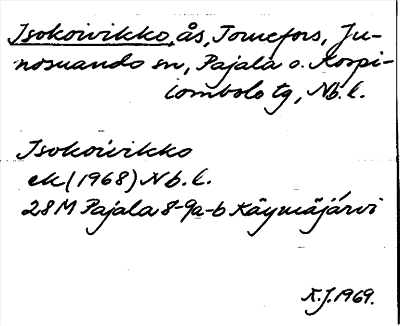 Isokoivikko, ås, Tornefors, Ju-
nosuando sn, Pajala o. Korpi-
lombolo tg, Nb. l.
Isokoivikko
ek (1968) Nb. l.
28M Pajala 8-9a-b Käymäjärvi
K.J. 1969.